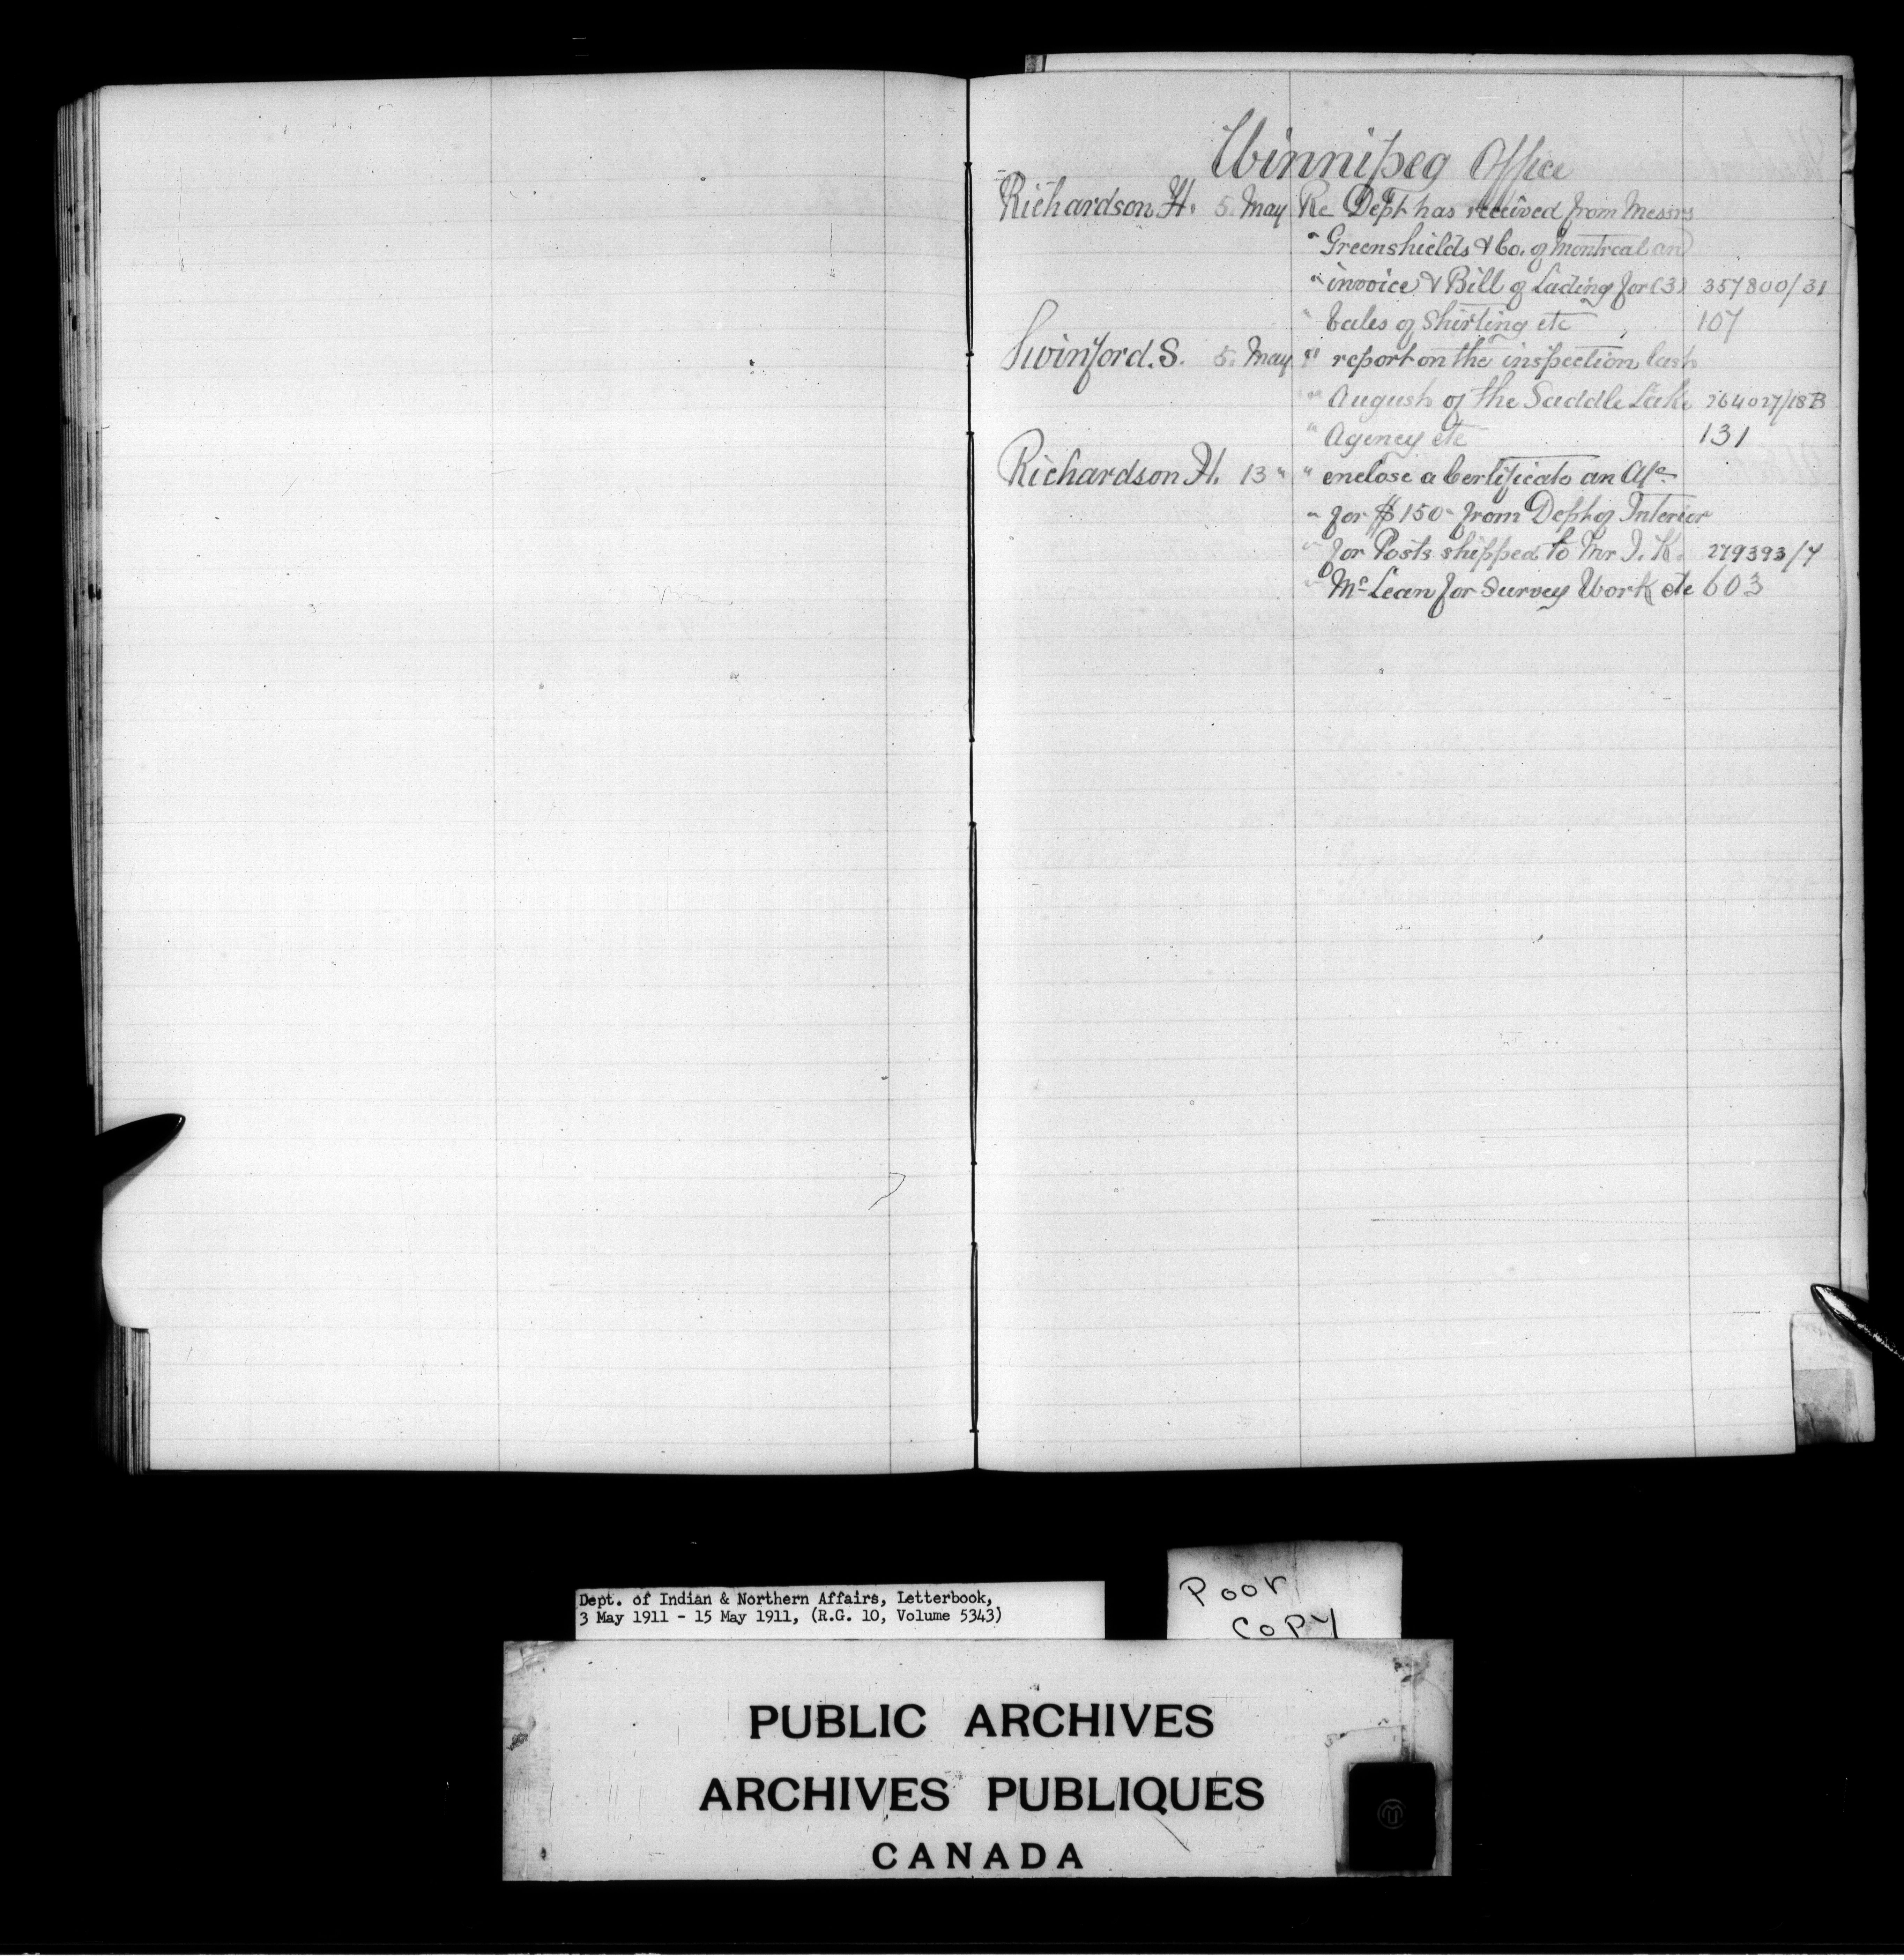 Winnipeg Office
Richardson H. 5. May Re Dept has received from Messrs
" Greenshields & Co. of Montreal an
" invoice & Bill of Lading for (3) 357800/31
" bales of Shirting etc 107
Swinford. S. 5. May " report on the inspection last
" August of the Saddle Lake 264027/18B
" Agency etc 131
Richardson H. 13 " " enclose a Certificate an A/c
" for $150 - from Dept of Interior
" for Posts shipped to Mr J. K. 279393/7
" Mc Lean for Survey Work etc 603
Dept. of Indian & Northern Affairs, Letterbook,
3 May 1911 - 15 May 1911, (R.G. 10, Volume 5343)
Poor
COPY
PUBLIC ARCHIVES
ARCHIVES PUBLIQUES
CANADA